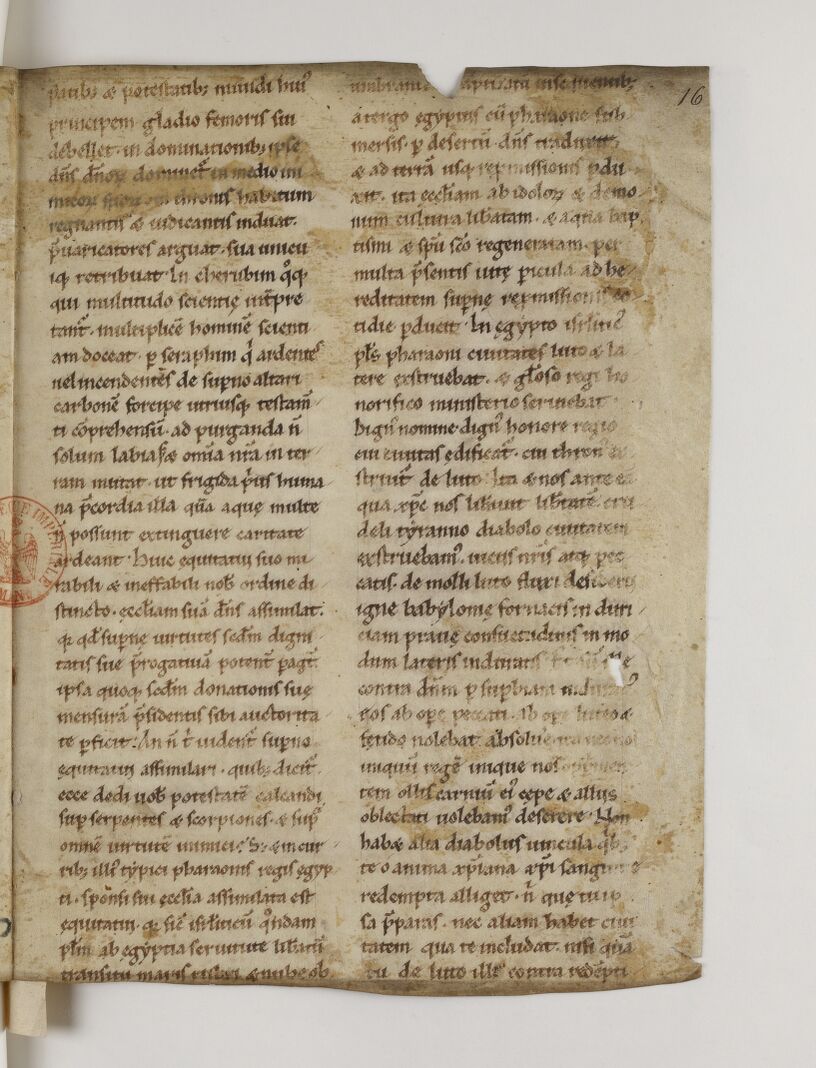 p̄atib; & potestatib; mundi hui᾽
principem gladio femoris sui
debellet. in dominationib; ipse
dn̄s dn̄oꝝ
regnantis & iudicantis induat.
p̄uaricatores arguat. sua unicu
iq; retribuat. In cherubim q̊q;
qui multitudo scientię int̄pre
tant᾽. multiplicē hominē scienti
am doceat. ꝑ seraphim q̇ ardentes
uel incendentes de supno altari
carbonē forcipe utriusq; testam̄
ti cōprehensū. ad purganda n̄
solum labia sꝫ & omīa nr̄a in ter
ram mittat. ut frigida p̄us huma
na p̄cordia illa qūa aquę multę
n̄ possunt extinguere caritate
ardeant. Huic equitatui suo mi
rabili & ineffabili nob̄ ordine di
stincto. ęccl̄iam suā dn̄s assimilat.
q; qd̄ supnę uirtutes scd̄m digni
tatis suę p̄rogatiuā potent᾽ pagt᾽.
ipsa quoq; scd̄m donationis suę
mensurā p̄sidentis sibi auctorita
te pficit. An n̄ t᾽ uident᾽ supno
equitatui assimilari. quib; dicit᾽.
ecce dedi uob̄ potestatē calcandi
sup serpentes & scorpiones. & sup̄
omnē uirtutē inimici. S; & in cur
rib; illi᾽ typici pharaonis regis egyp
ti. sponsi sui ęccl̄ia assimilata est
equitatui. q; sic̄ isrl̄iticū q̊ndam
pl̄m ab egyptia seruitute lib̄atū
transitu maris rubri & nube ob
umbratum baptizatū
a tergo ęgyptiis cū pharaone sub
mersis. ꝑ desertū. dn̄s traduxit
& ad terrā usq; repmissionis pdu
xit. ita ęccl̄iam ab idoloꝝ & demo
num cultura lib̄atam. & aqua bap
tismi & sp̄u sc̄o regeneratam. per
multa p̄sentis uitę picula ad he
reditatem supnę repmissionis co
tidie pducit. In ęgypto isrl̄itic᾽
pl̄s pharaoni ciuitates luto & la
tere exstruebat. & gl̄oso regi ho
norifico ministerio seruiebat.
Dign᾽ nomine. dign᾽ honore regio
cui ciuitas ędificat᾽. cui thron᾽ ex
struit᾽ de luto. Ita & nos ante ea
qua xp̄c nos lib̄auit lib̄tatē. cru
deli tyranno diabolo ciuitatem
exstruebam᾽. uiciis nr̄is atq; pec
catis. de molli luto fluxi desiderii
igne babylonię fornacis in duri
ciam prauę consuetudinis in mo
dum lateris induratis
contra dn̄m ꝑ supbiam indurat᾽
nos ab opę peccati. ab opę luteo &
fętido nolebat absolui
unquū regē unque nos
tem ollis carniū ei᾽ cepe & alliis
oblectati uolebam᾽ deserere. Non
habꝫ alia diabolus uincula qb;
te o anima xp̄iana xp̄i sanguine
redempta alliget. n̄ quę tu ip
sa p̄paras. nec aliam habet ciui
tatem qua te includat. nisi quā
tu de luto illi᾽ contra redēpti
16